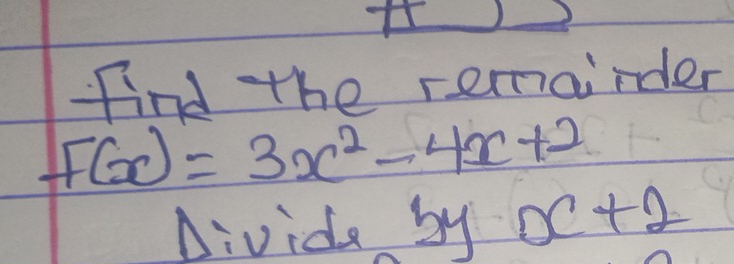 Find the remainder
F(x) = 3x² - 4x + 2
Divide by x + 2